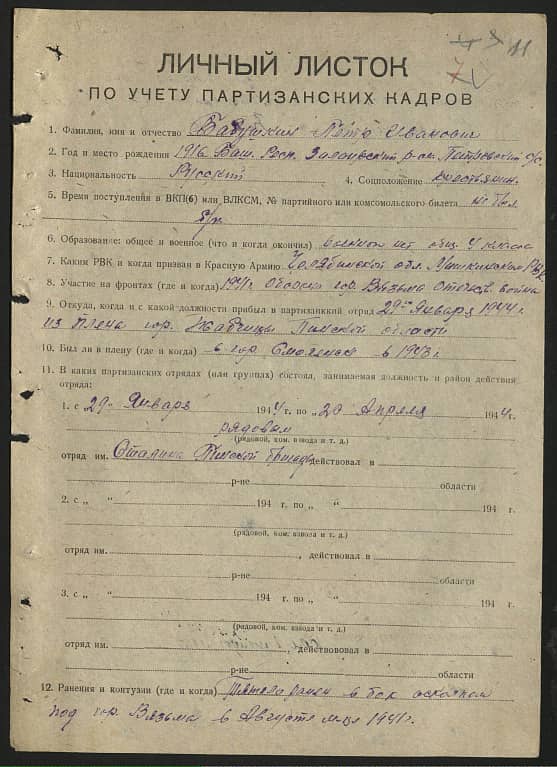 11
7
ЛИЧНЫЙ ЛИСТОК
ПО УЧЕТУ ПАРТИЗАНСКИХ КАДРОВ
1. Фамилия, имя и отчество Бабушкин Пётр Иванович
2. Год и место рождения 1916 Баш. Респ. р-он. Петровский с/с
3. Национальность Русский 4. Соцположение крестьянин.
5. Время поступления в ВКП(б) или ВЛКСМ, № партийного или комсомольского билета не был
б/п
6. Образование: общее и военное (что и когда окончил) военного нет общ. 4 класса
7. Каким РВК и когда призван в Красную Армию Челябинской обл. Мишкинским РВК
8. Участие на фронтах (где и когда) 1941г Оборона гор. Вязьма Отечеств. война
9. Откуда, когда и с какой должности прибыл в партизанский отряд 29го Января 1944 г
из плена гор. Пинской области
10. Был ли в плену (где и когда) в гор Смоленск в 1943 г
11. В каких партизанских отрядах (или группах) состоял, занимаемая должность и район действия
отряда:
1. с 29го Января 1944 г. по „ 20 Апреля 1944 г.
рядовым
(рядовой, ком. взвода и т. д.)
отряд им. Сталина Пинской бригады действовал в
р-не области
2. с „ “ 194 г. по „ “ 194 г.
(рядовой, ком. взвоза и т. д.)
отряд им. , действовал в
р-не области
3. с „ “ 194 г. по „ “ 194 г.
(рядовой, ком. взвода и т. д.)
отряд им. действововал в
р-не области
12. Ранения и контузии (где и когда) Тяжело ранен в бок осколком
под гор. Вязьма в Августе м-це 1941 г.